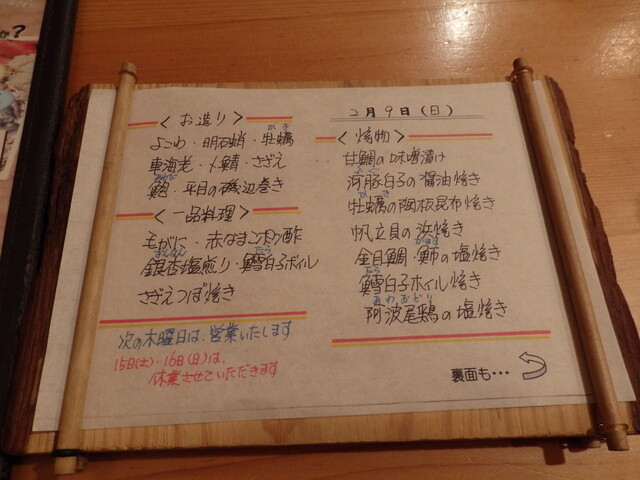 2月9日(日)
<お造り>
よこわ・明石蛸・牡蠣
かき
車海老・〆鯖・さざえ
鮑・平目の磯辺巻き
あわび
<一品料理>
毛がに・赤なまこポン酢
銀杏塩煎り・鱈白子ボイル
ぎんなん
たら
さざえつぼ焼き
次の木曜日は、営業いたします
15日(土)・16日(日)は、
休業させていただきます
<焼物>
甘鯛の味噌漬け
河豚白子の醤油焼き
ふぐ
牡蠣の陶板昆布焼き
かき
帆立貝の浜焼き
金目鯛・魳の塩焼き
かます
鱈白子ホイル焼き
たら
阿波尾鶏の塩焼き
あわおどり
裏面も・・・
か?